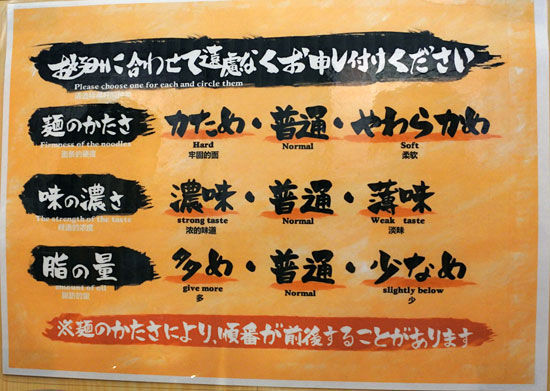 お好みに合わせて遠慮なくお申し付けください
Please choose one for each and circle them
麺のかたさ
かため・普通・やわらかめ
Firmness of the noodles
Hard
Normal
Soft
面条的硬度
牢固的面
柔软
味の濃さ
濃味・普通・薄味
The strength of the taste
strong taste
Normal
Weak taste
味道的浓度
浓的味道
淡味
脂の量
多め・普通・少なめ
amount of oil
give more
Normal
slightly below
多
少
※麺のかたさにより、順番が前後することがあります